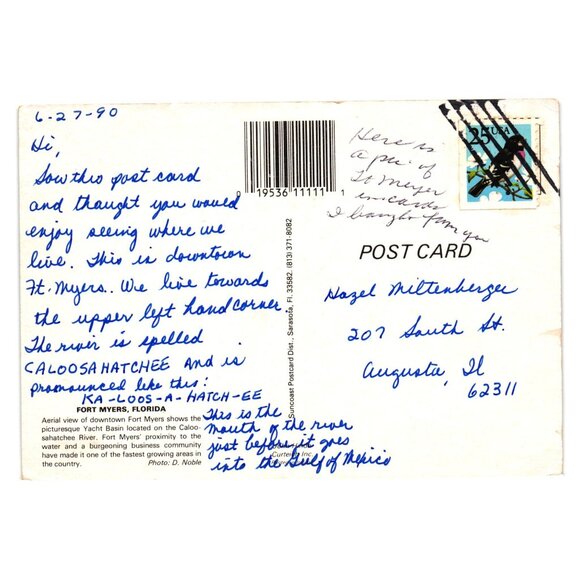 6-27-90
Hi,
Saw this post card
and thought you would
enjoy seeing where we
live. This is downtown
Ft. Myers. We live towards
the upper left hand corner.
The river is spelled
CALOOSAHATCHEE and is
pronounced like this:
KA-LOOS-A-HATCH-EE
This is the
mouth of the river
just before it goes
into the Gulf of Mexico
FORT MYERS, FLORIDA
Aerial view of downtown Fort Myers shows the
picturesque Yacht Basin located on the Caloo-
sahatchee River. Fort Myers' proximity to the
water and a burgeoning business community
have made it one of the fastest growing areas in
the country. Photo: D. Noble
19536 11111 1
Suncoast Postcard Dist., Sarasota, Fl. 33582, (813) 371-8082
Curteich, Inc.
Here is
a pic. of
Ft Meyer
in cards
I bought from you
25 USA
POST CARD
Hazel Miltenberger
207 South St.
Augusta, Il
62311